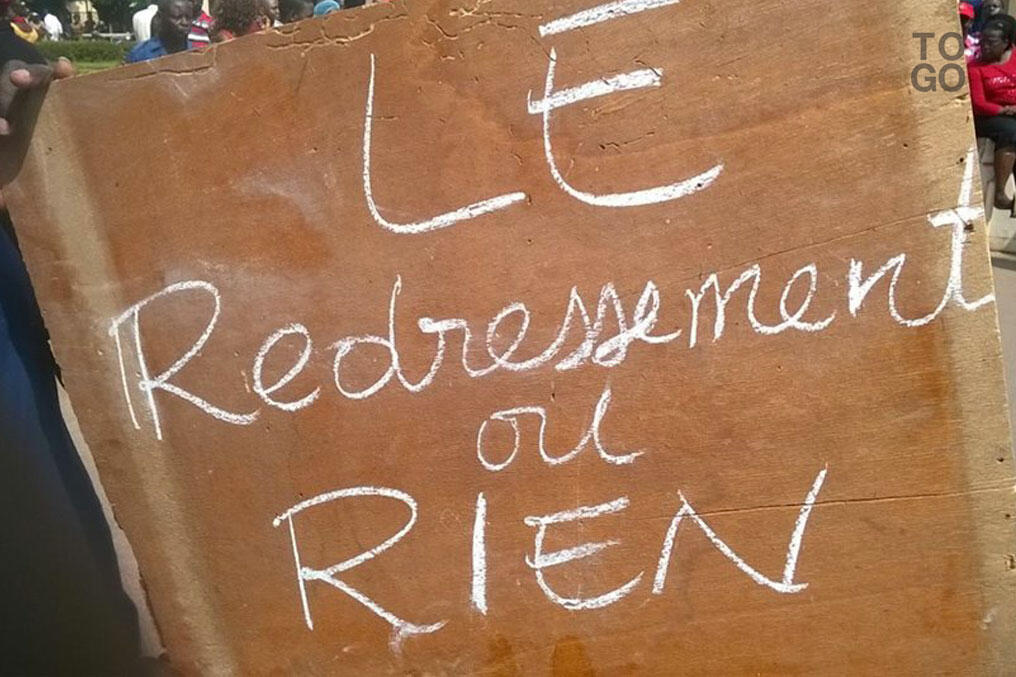 LE
Redressement
ou
RIEN
TO
GO